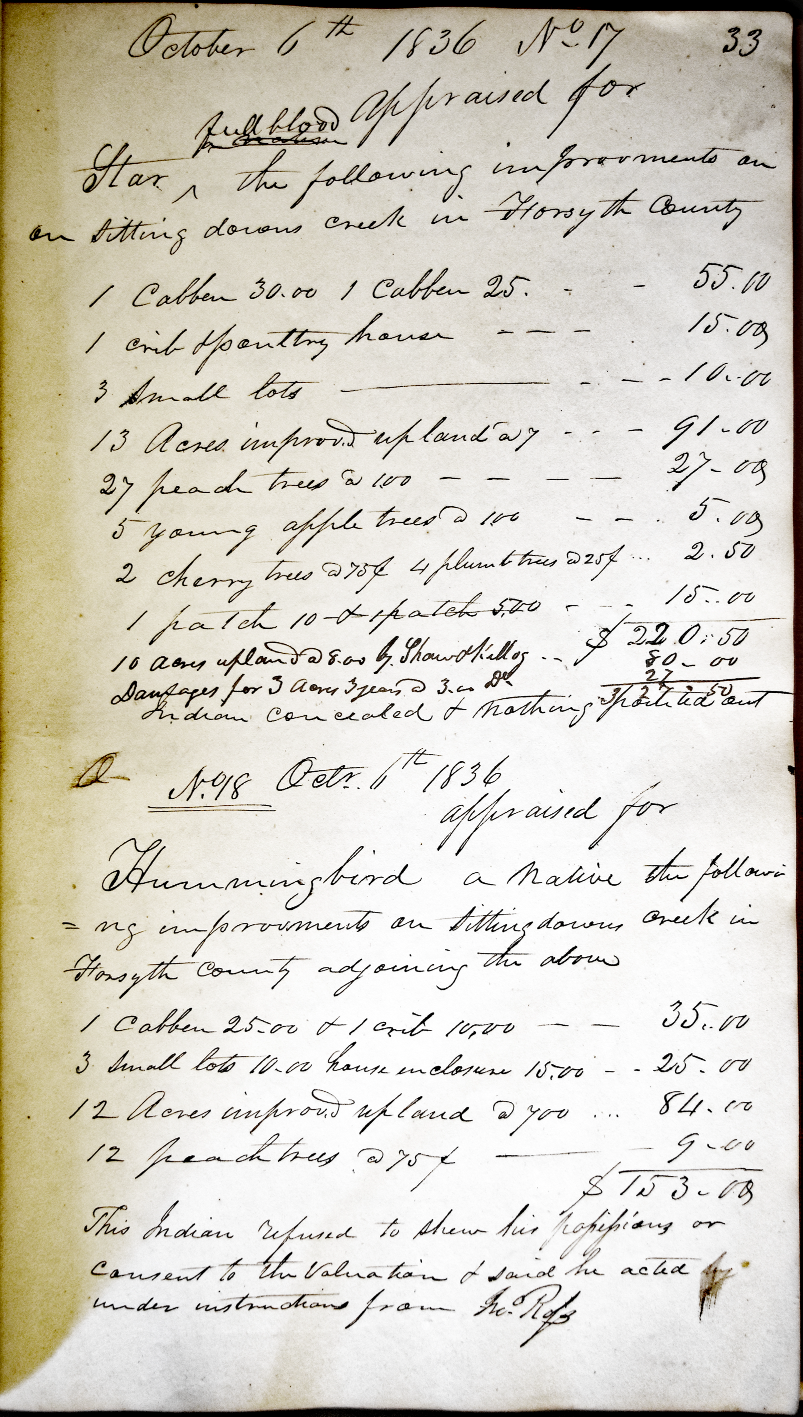 October 6th 1836 No 17 33
appraised for
full blood
Star ^ the following improovments on
on Sitting downs creek in Forsyth County
1 Cabben 30.00 1 Cabben 25. - - 55.00
1 crib & poultry house - - - 15.00
3 Small lots - - - 10.00
13 Acres improvd upland a 7 - - - 91-00
27 peach trees a 100 - - - - 27-00
5 young apple trees a 100 - - . 5.00
2 cherry trees a 75¢ 4 plumb trees a 25¢ ... 2.50
1 patch 10 & 1 patch 5.00 - - . 15.00
$ 220.50
10 acres upland a 8.00 by Shaw & Kellog - . 80-00
Damages for 3 Acres 3 years a 3.00 Do. 27
327.50
Indian concealed & nothing pointed out
No. 18 Octr. 6th 1836
appraised for
Hummingbird a Native the followi
= ng improovments on Sittingdowns creek in
Forsyth County adjoining the above
1 Cabben 25.00 & 1 crib 10.00 - - 35.00
3 Small lots 10.00 house enclosure 15.00 - - 25.00
12 Acres improvd upland a 700 ... 84.00
12 peach trees a 75¢ - - 9-00
$ 153-00
This Indian refused to shew his possessions or
consent to the Valuation & said he acted
under instructions from Jno. Ross